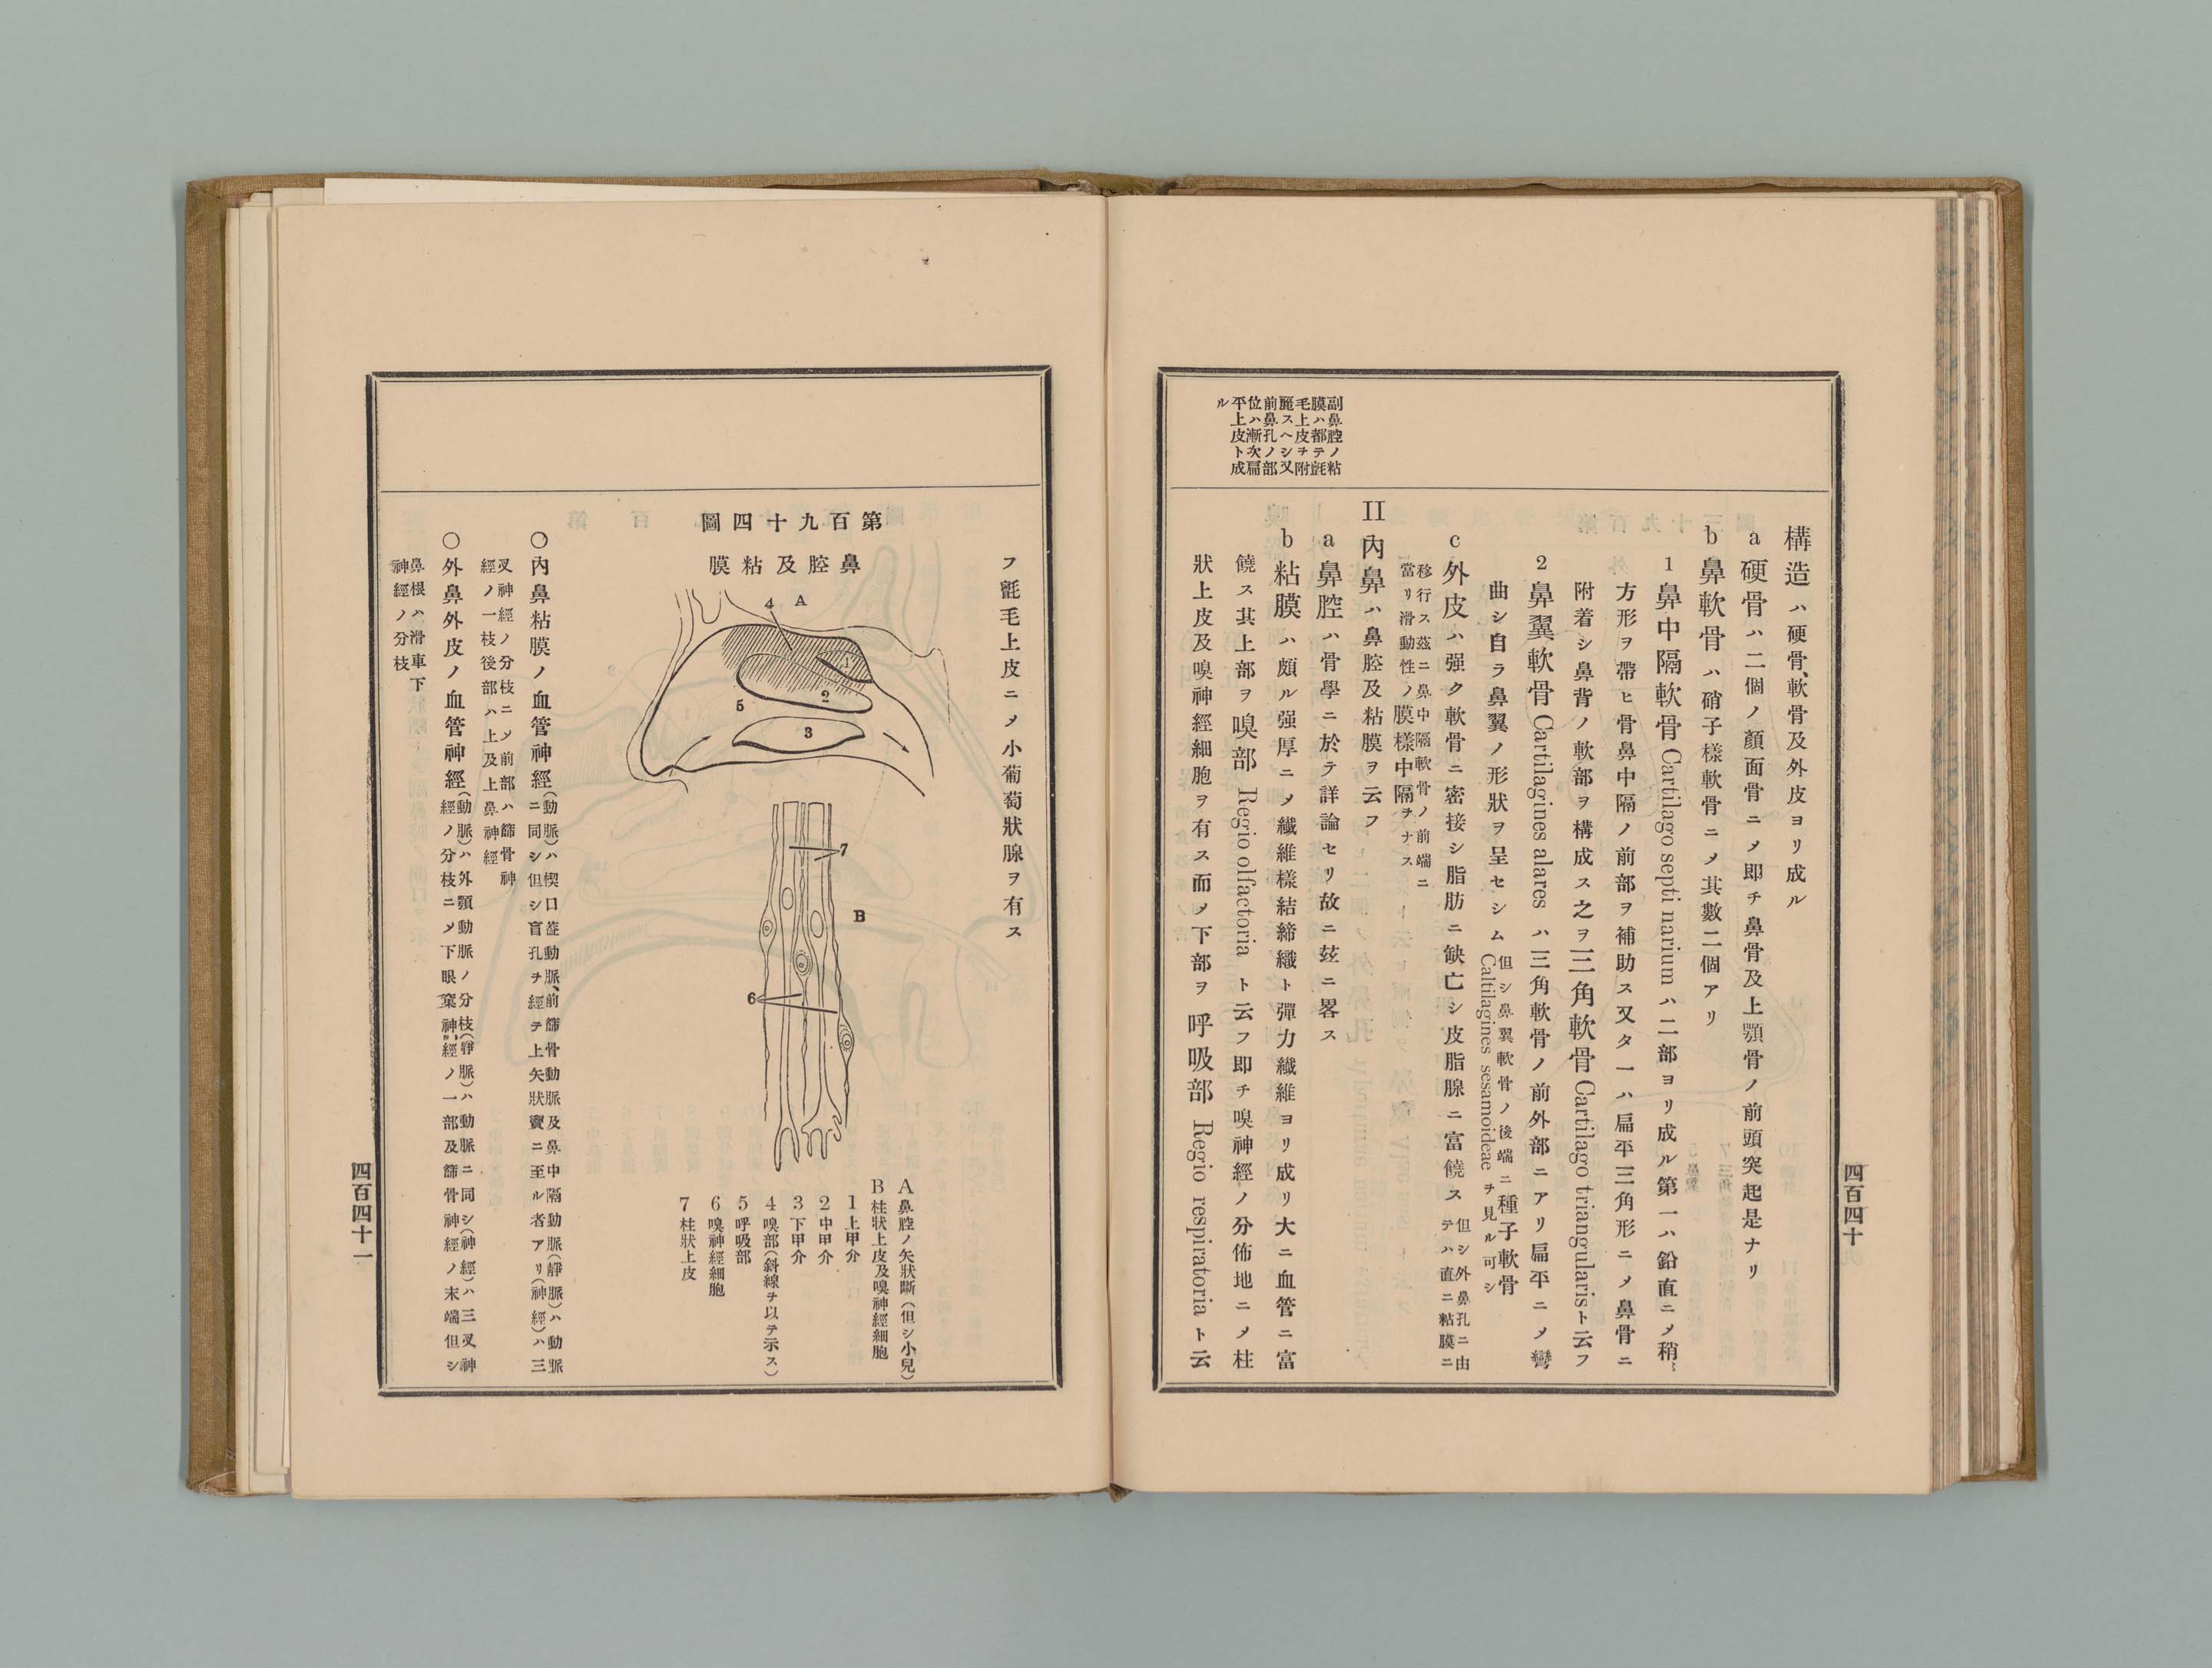 四百四十
副鼻腔ノ粘
膜ハ都テ氈
毛上皮ヲ附
麗スヘシ又
前鼻孔ノ部
位ハ漸次扁
平上皮ト成
ル
構造ハ硬骨、軟骨及外皮ヨリ成ル
a 硬骨ハ二個ノ顏面骨ニメ即チ鼻骨及上顎骨ノ前頭突起是ナリ
b 鼻軟骨ハ硝子樣軟骨ニメ其數二個アリ
1 鼻中隔軟骨 Cartilago septi narium ハ二部ヨリ成ル第一ハ鉛直ニメ稍〻
方形ヲ帶ヒ骨鼻中隔ノ前部ヲ補助ス又タ一ハ扁平三角形ニメ鼻骨ニ
附着シ鼻背ノ軟部ヲ構成ス之ヲ三角軟骨 Cartilago triangularis ト云フ
2 鼻翼軟骨 Cartilagines alares ハ三角軟骨ノ前外部ニアリ扁平ニメ彎
曲シ自ラ鼻翼ノ形狀ヲ呈セシム 但シ鼻翼軟骨ノ後端ニ種子軟骨
Caltilagines sesamoideae ヲ見ル可シ
c 外皮ハ强ク軟骨ニ密接シ脂肪ニ缺亡シ皮脂腺ニ富饒ス 但シ外鼻孔ニ由
テハ直ニ粘膜ニ
移行ス玆ニ鼻中隔軟骨ノ前端ニ
當リ滑動性ノ膜樣中隔ヲナス
II 內鼻ハ鼻腔及粘膜ヲ云フ
a 鼻腔ハ骨學ニ於テ詳論セリ故ニ玆ニ畧ス
b 粘膜ハ頗ル强厚ニメ纖維樣結締織ト彈力纖維ヨリ成リ大ニ血管ニ富
饒ス其上部ヲ嗅部 Regio olfactoria ト云フ即チ嗅神經ノ分佈地ニメ柱
狀上皮及嗅神經細胞ヲ有ス而メ下部ヲ呼吸部 Regio respiratoria ト云
フ氈毛上皮ニメ小葡萄狀腺ヲ有ス
第百九十四圖
鼻腔及粘膜
A
4
1
2
5
3
7
B
6
A 鼻腔ノ矢狀斷(但シ小兒)
B 柱狀上皮及嗅神經細胞
1 上甲介
2 中甲介
3 下甲介
4 嗅部(斜線ヲ以テ示ス)
5 呼吸部
6 嗅神經細胞
7 柱狀上皮
〇內鼻粘膜ノ血管神經(動脈)ハ楔口蓋動脈、前篩骨動脈及鼻中隔動脈(靜脈)ハ動脈
ニ同シ但シ盲孔ヲ經テ上矢狀竇ニ至ル者アリ(神經)ハ三
叉神經ノ分枝ニメ前部ハ篩骨神
經ノ一枝後部ハ上及上鼻神經
〇外鼻外皮ノ血管神經(動脈)ハ外顎動脈ノ分枝(靜脈)ハ動脈ニ同シ(神經)ハ三叉神
經ノ分枝ニメ下眼窠神經ノ一部及篩骨神經ノ末端但シ
鼻根ハ滑車下
神經ノ分枝
四百四十一